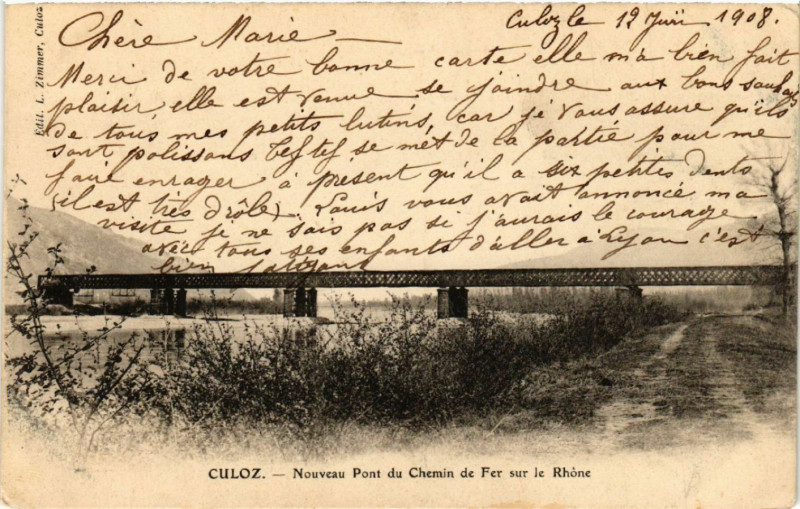 Edit. L. Zimmer, Culoz
Culoz le 12 Juin 1908.
Chère Marie —
Merci de votre bonne carte elle m'a bien fait
plaisir, elle est venue se joindre aux bons souhaits
de tous mes petits lutins, car je vous assure qu'ils
sont polissons se met de la partie pour me
faire enrager à présent qu'il a six petites dents
(il est très drôle). Louis vous avait annoncé ma
visite je ne sais pas si j'aurais le courage
avec tous ses enfants d'aller à Lyon c'est
bien fatigant
CULOZ. — Nouveau Pont du Chemin de Fer sur le Rhône